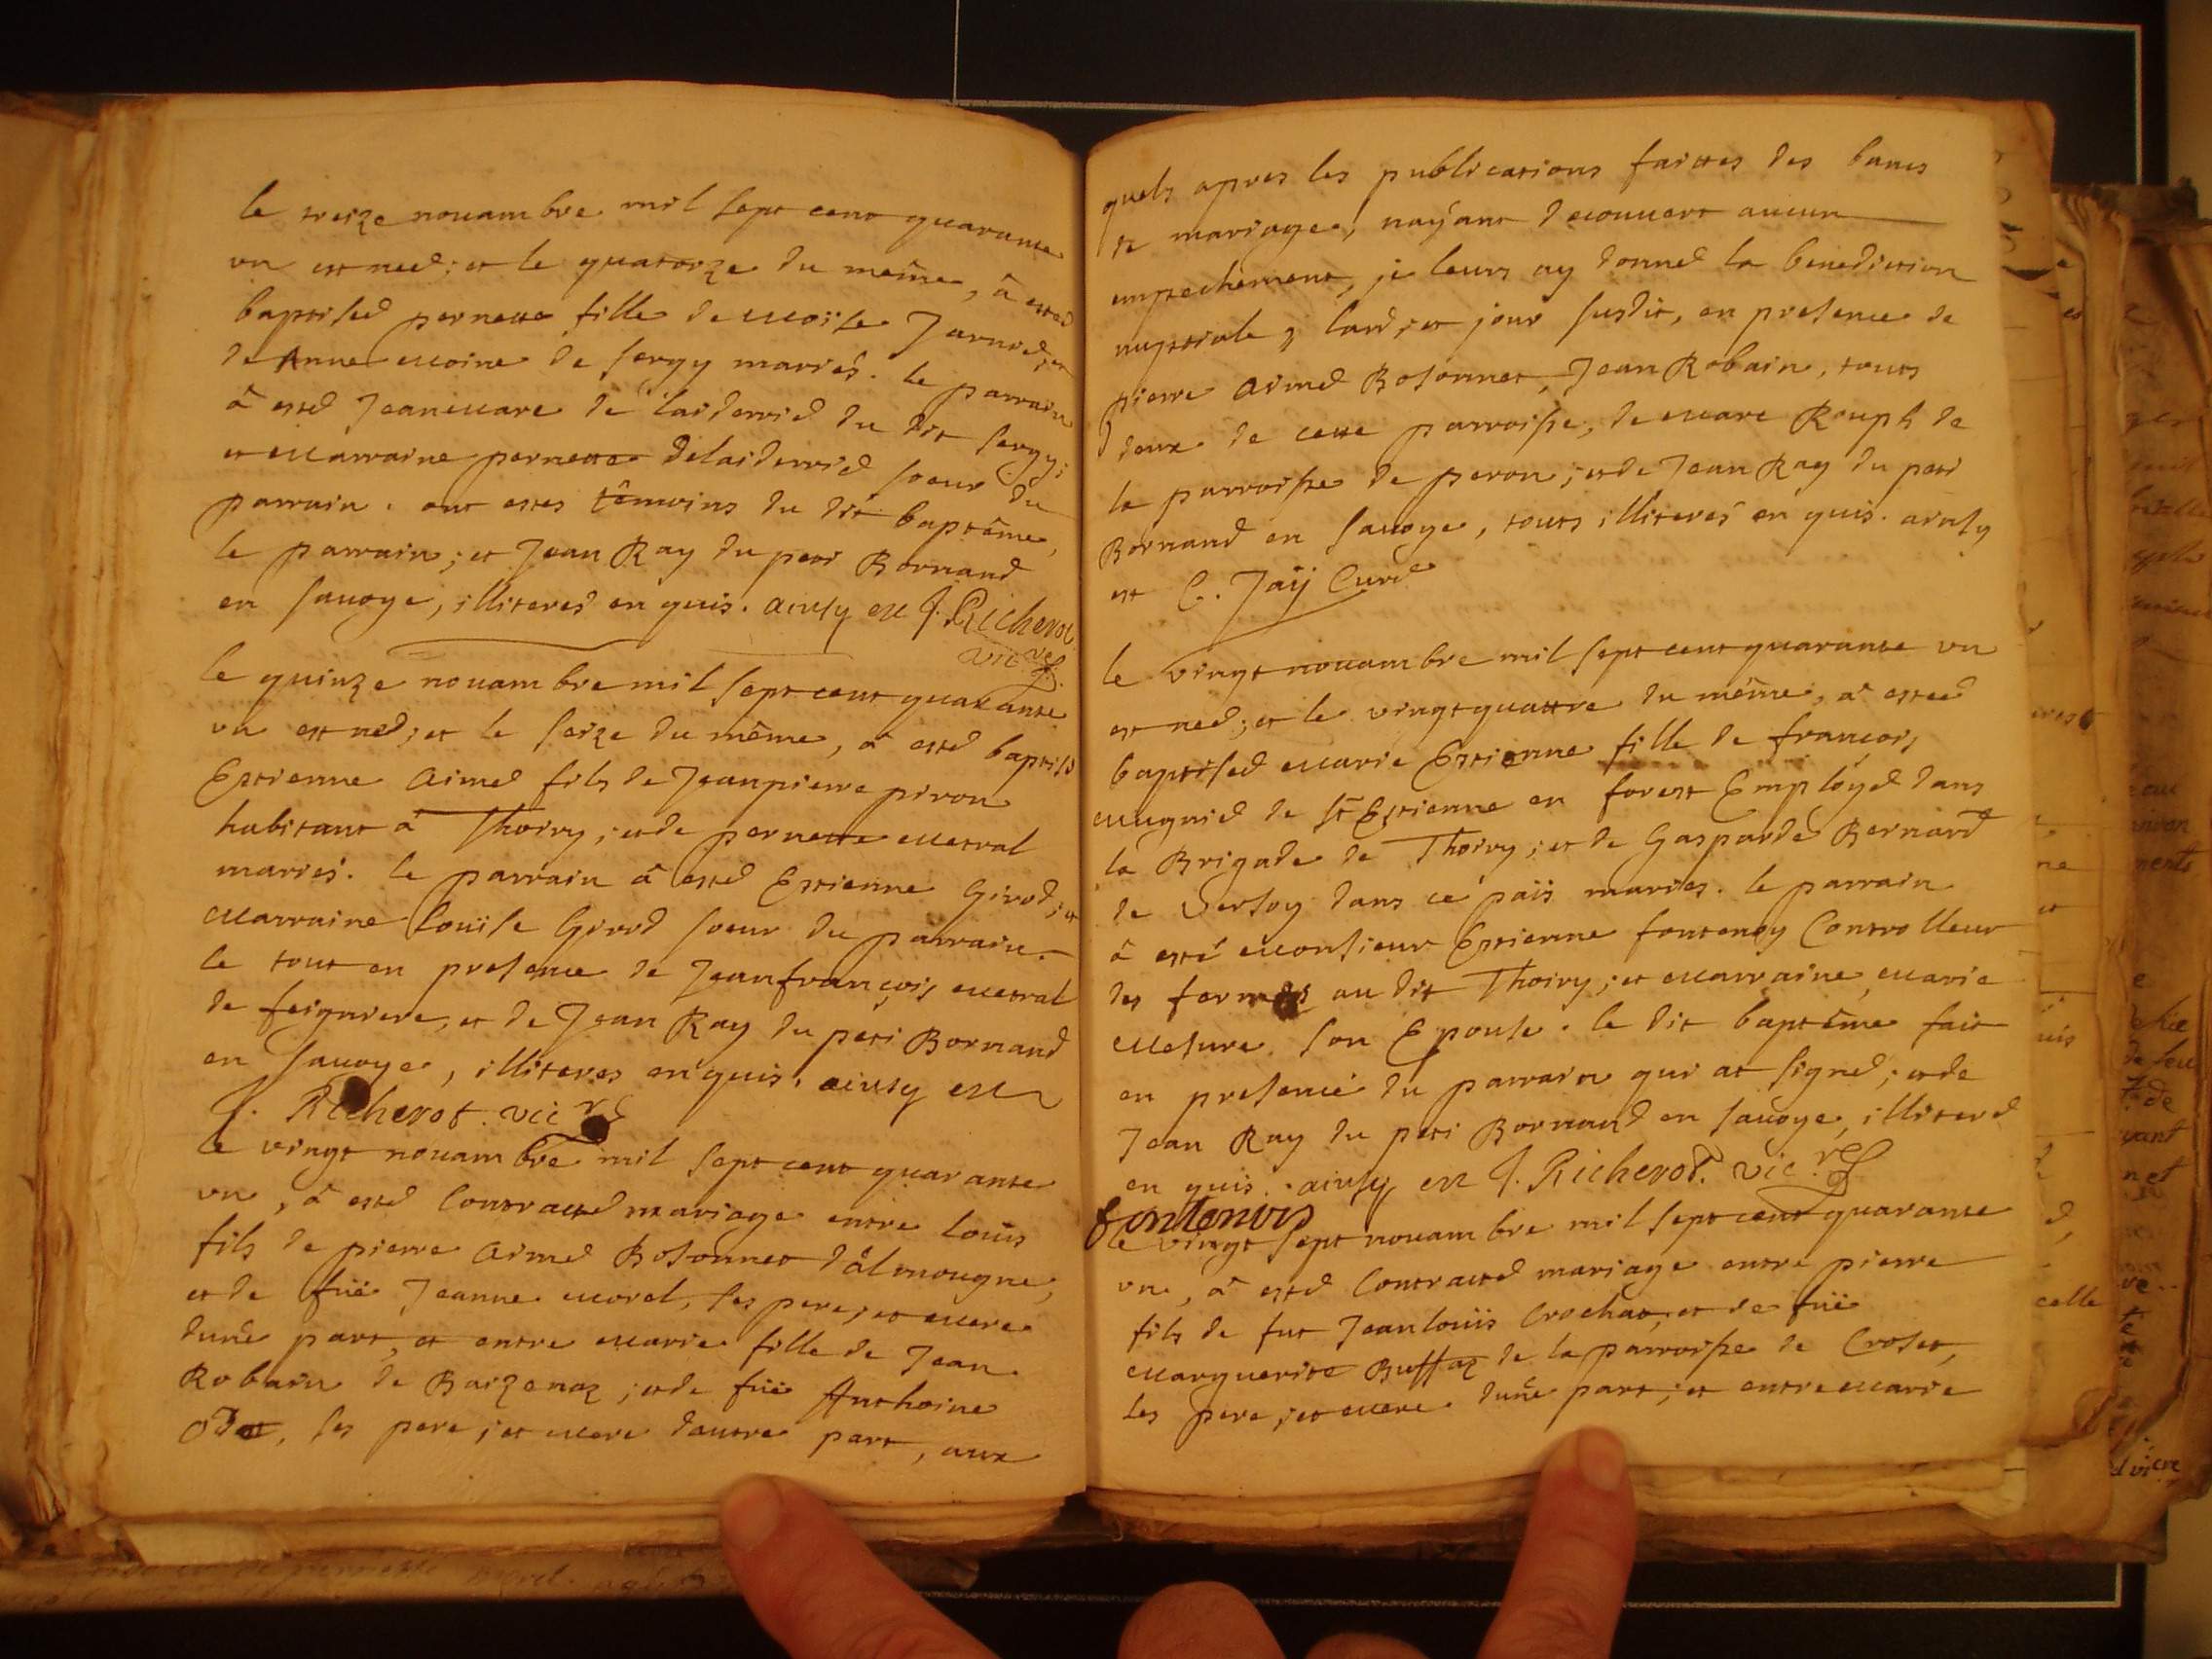 le treize nouambre mil sept cent quarante
vn est néé; et le quatorze du même, â estéé
baptiséé pernette fille de Moïse Jarnié, et
de Anne Moine de sergy mariés. le parrain
â esté Jeanmarc de laidevrié du dit sergy;
et Marraine pernette Delaidevrié soeur du
parrain. ont estes têmoins du dit baptême,
le parrain; et Jean Ray du peti Bornand
en savoye, illiteres enquis. ainsy est J. Richerot
vic re
le quinze nouambre mil sept cent quarante
vn est né; et le seize du même, â esté baptisé
Estienne Aimé fils de Jeanpierre piron
habitant â Thoiry; et de pernette Mestral
mariés. le parrain â esté Estienne Girod, et
Marraine Louïse Girod soeur du parrain.
le tout en presence de Jeanfrançois Mestral
de feigniere, et de Jean Ray du peti Bornand
en savoye, illiteres enquis, ainsy est
J. Richerot. vic re
le vingt nouambre mil sept cent quarante
vn, â esté Contracté mariage entre Louis
fils de pierre Aimé Bosonnet d'âlmougne,
et de füe Jeanne Morel, ses pere; et Mere
dune part, et entre Marie fille de Jean
Robain de Baizenaz; et de füe Anthoine
Odet, ses pere; et Mere dautre part, aux
quels apres les publications faittes des bancs
de mariage, nayant decouvert aucun
empechement, je leurs ay donné la benediction
nuptiale, lané; et jour susdit, en presence de
pierre Aimé Bosonnet, Jean Robain, touts
deux de cette parroisse, de Marc Rouph de
la parroisse de peron; et de Jean Ray du peti
Bornand en savoye, touts illiterés en quis. ainsy
est C. Jaÿ Curé
le vingt nouambre mil sept cent quarante vn
est néé; et le vingt quattre du même, â estéé
baptiséé Marie Estienne fille de françois
Mugnié de st Estienne en forest Employé dans
la Brigade de Thoiry; et de Gasparde Bernard
de Versoy dans ce païs mariés. le parrain
â esté Monsieur Estienne fontenoy Controlleur
des fermes au dit Thoiry; et Marraine Marie
Mesure son Epouse. le dit baptême fait
en presence du parrain qui at signé; et de
Jean Ray du peti Bornand en savoye, illiteré
en quis. ainsy est J. Richerot. vic re
fontenois
le vingt sept nouambre mil sept cent quarante
vn, â esté Contracté mariage entre pierre
fils de fut Jeanlouïs Crochat; et de füe
Marguerite Buffaz de la parroisse de Croset,
ses pere; et Mere dune part; et entre Marie